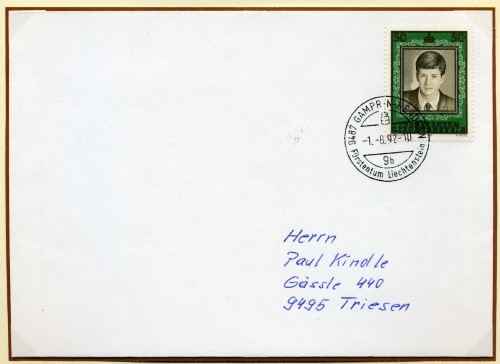 50 50
9487 GAMPR
-1.-8.92-10
9b
Fürstentum Liechtenstein
Herrn
Paul Kindle
Gässle 440
9495 Triesen